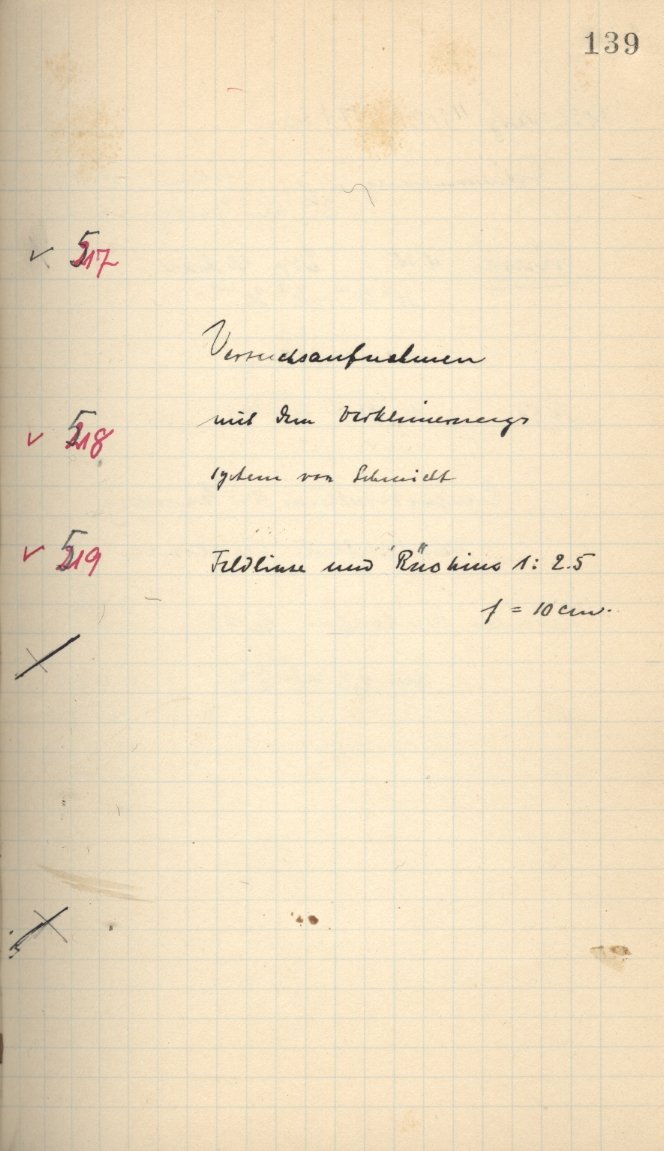 139
✓ 517
Versuchsaufnahmen
mit dem Verkleinerungs
✓ 518
system von Schmidt
✓ 519 Feldlinse und 1: 2.5
f = 10 cm.